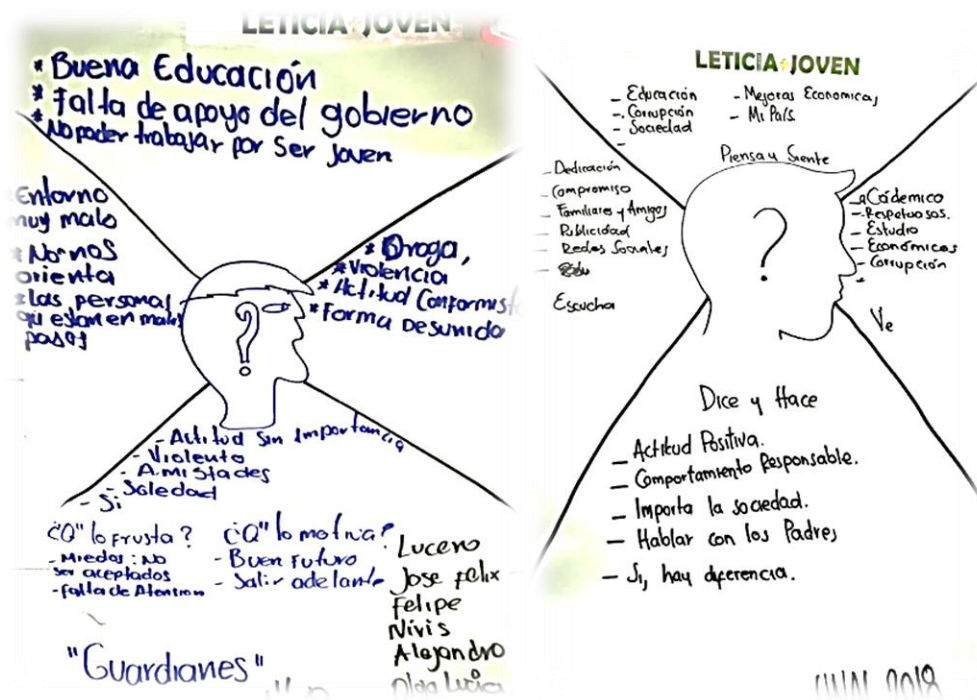 LETICIA JOVEN
* Buena Educación
* Falta de apoyo del gobierno
* No poder trabajar por Ser Joven
Entorno
muy malo
* No nos
orienta
* Las personas
qu estan en malos
pasos
* Droga,
* Violencia
* Actitud Conformist
* Forma Desunida
?
- Actitud Sin Importancia
- Violento
- Amistades
Soledad
- Si
¿Q" lo Frusta?
- Miedos: No
ser aceptados
- Falta de Atention
¿Q" lo motiva?
- Buen Futuro
- Salir adelante
Lucero
Jose Felix
Felipe
Nivis
Alejandro
Olga Lucia
"Guardianes"
LETICIA JOVEN
- Educación
- Corrupción
- Sociedad
-
- Mejoras Economicas
- Mi País.
Piensa y Siente
- Dedicación
- Compromiso
- Familiares y Amigos
- Publicidad
- Redes Sociales
Escucha
?
- aCádemico
- Respetuosos.
- Estudio
- Económicas
- Corrupción
Ve
Dice y Hace
- Actitud Positiva.
- Comportamiento Responsable.
- Importa la sociedad.
- Hablar con los Padres
- Si, hay diferencia.
2018